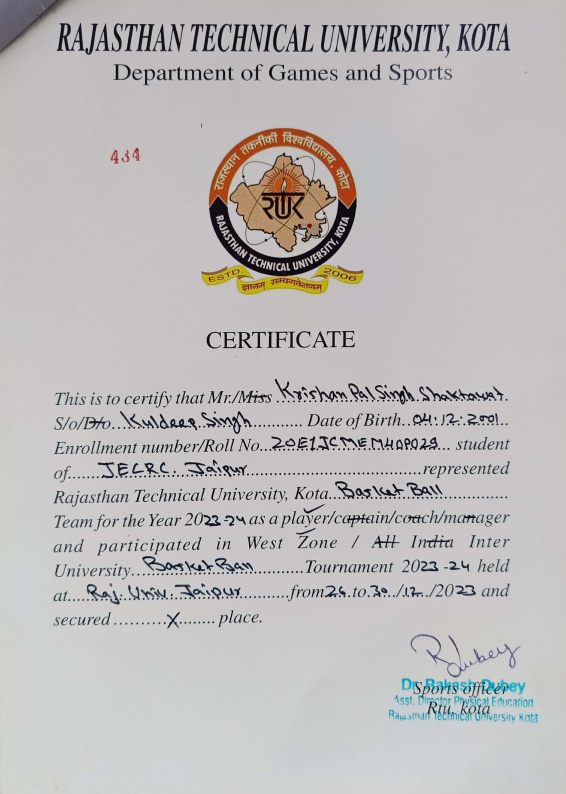 RAJASTHAN TECHNICAL UNIVERSITY, KOTA
Department of Games and Sports
434
राजस्थान तकनीकी विश्वविद्यालय, कोटा
RTUK
RAJASTHAN TECHNICAL UNIVERSITY, KOTA
ESTD. 2006
ज्ञानम् सम्यगवेक्षणम्
CERTIFICATE
This is to certify that Mr./Miss Krishan Pal Singh Shaktawat
S/o/D/o Kuldeep Singh Date of Birth 04.12.2001
Enrollment number/Roll No. 20E1JCMEM40P029 student
of JECRC, Jaipur represented
Rajasthan Technical University, Kota Basket Ball
Team for the Year 2023-24 as a player/captain/coach/manager
and participated in West Zone / All India Inter
University Basket Ball Tournament 2023-24 held
at Raj. Univ. Jaipur from 26 to 30 /12 /2023 and
secured X place.
RDubey
Dr. Rakesh Dubey
Sports officer
Asst. Director Physical Education
Rtu, kota
Rajasthan Technical University Kota